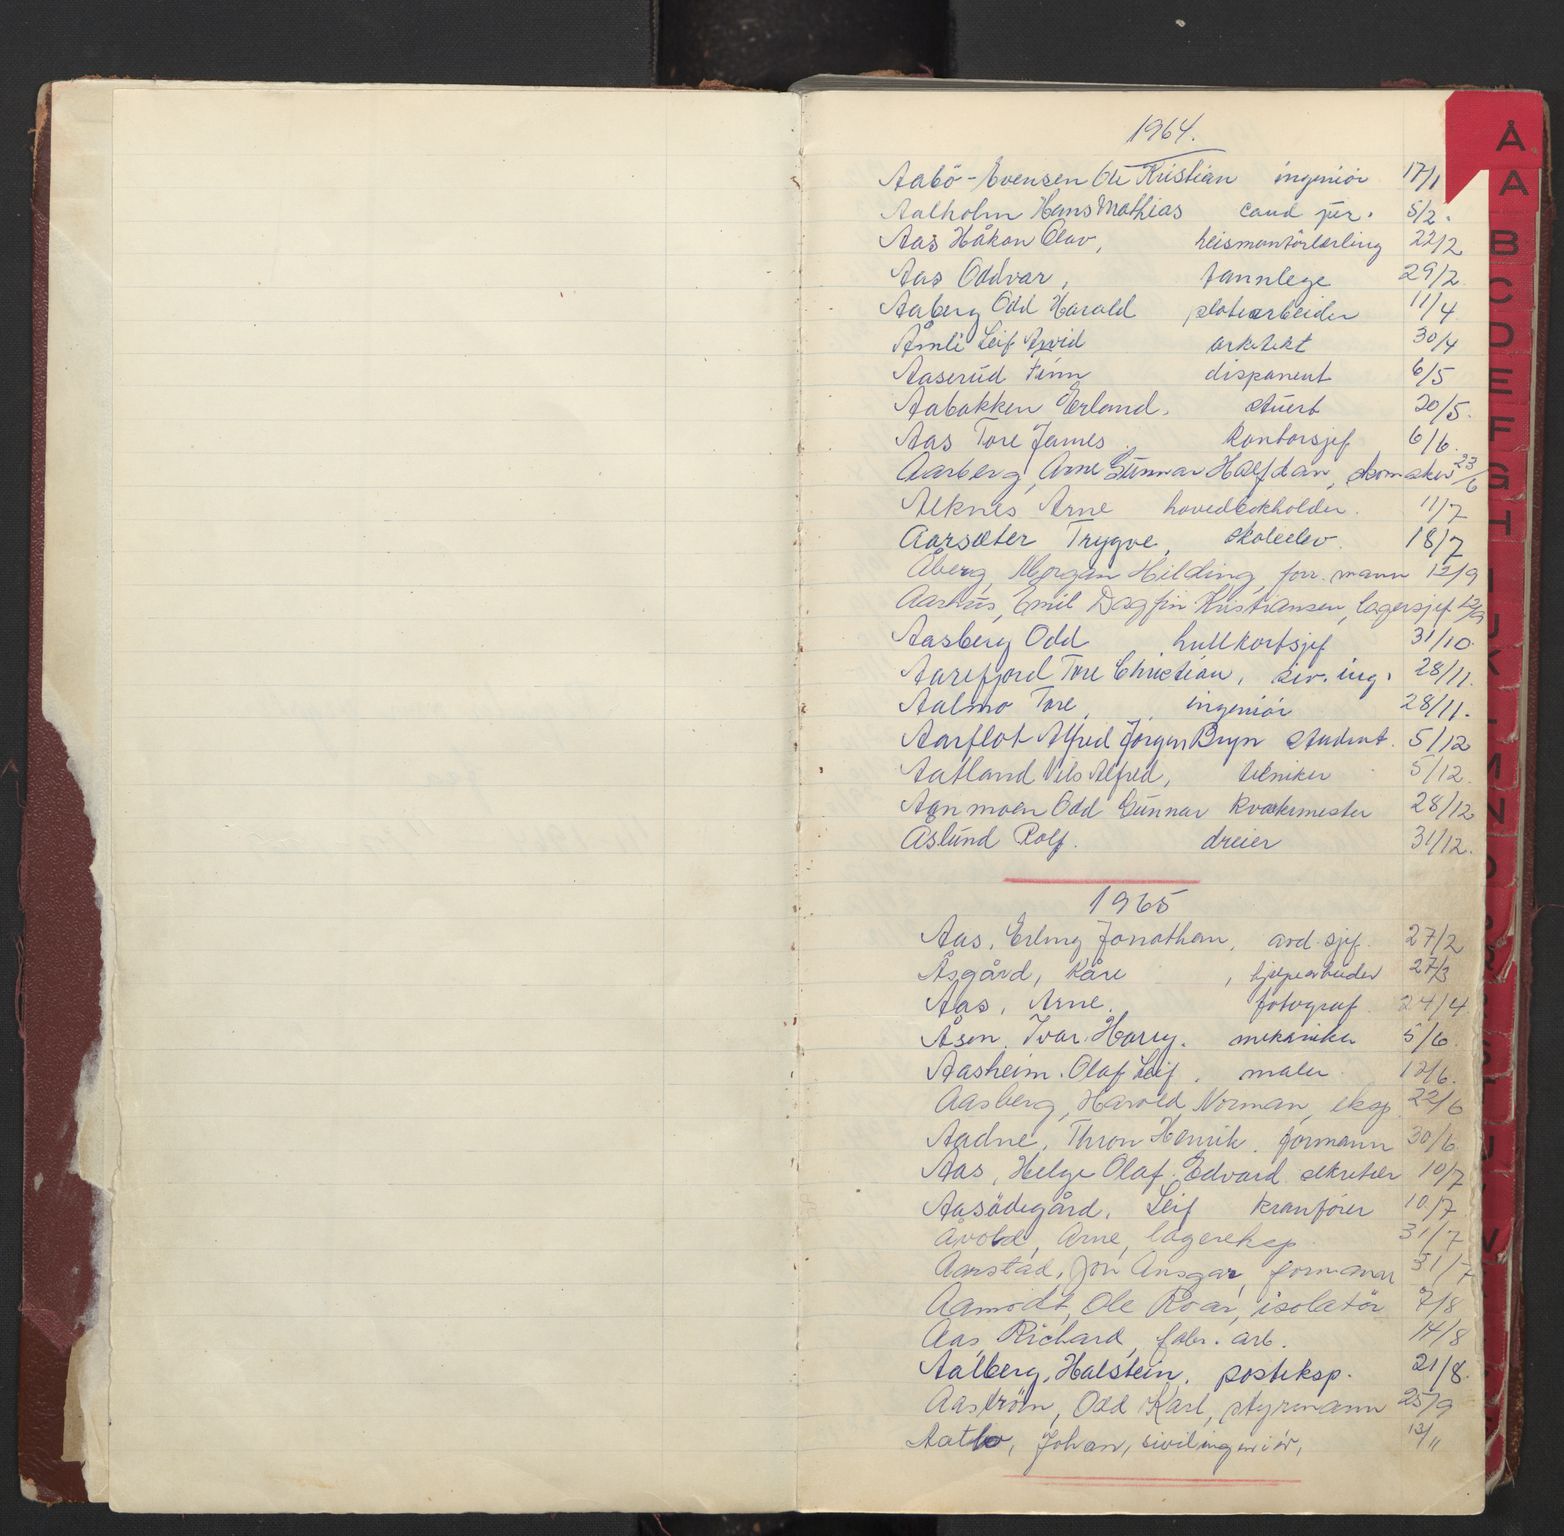 1964.
Aabö-Evensen Ole Kristian ingeniör 17/1
Aalholm Hans Mathias cand jur. 5/2.
Aas Håkon Olav, heismontörlærling 22/2
Aas Oddvar, tannlege 29/2
Aaberg Odd Harald platearbeider 11/4
Åmli Leif Arvid arkitekt 30/4
Aaserud Finn disponent 6/5
Aabakken Erland. stuert 20/5.
Aas Tore James kontorsjef 6/6.
Aarberg, Arne Gunnar Halfdan, skomaker 23/6
Alknes Arne hovedbokholder. 11/7
Aarsæter Trygve, skoleelev. 18/7
Åberg, Morgan Hilding, forr. mann 12/9
Aarhus, Emil Dagfin Kristiansen, lagersjef 12/9
Aasberg Odd hullkortsjef 31/10.
Aarefjord Tore Christian, siv. ing. 28/11.
Aalmo Tore, ingeniör 28/11.
Aarflot Alfred Jörgen Bryn student. 5/12
Aatland Nils Alfred, tekniker 5/12.
Aanmoen Odd Gunnar kvartermester 28/12
Åslund Rolf. dreier 31/12.
1965
Aas, Erling Jonathan, avd. sjef. 27/2
Åsgård, Kåre, hjelpearbeider 27/3
Aas, Arne. fotograf 24/4
Åsen, Ivar Harry. mekaniker 5/6.
Aasheim. Olaf Leif, maler 12/6.
Aasberg, Harold Norman, eksp. 22/6
Aadne, Thron Henrik. formann 30/6.
Aas, Helge Olaf Edvard sekretær 10/7
Aasödegård, Leif kranförer 10/7.
Åvold, Arne, lagereksp. 31/7
Aarstad, Jon Ansgar, formann 31/7
Aamodt, Ole Roar, isolatör 7/8
Aas, Richard, fabr. arb. 14/8
Aalberg, Halstein, posteksp. 21/8.
Aaström, Odd Karl, styrmann 25/9
Aatlo, Johan, sivilingeniör, 13/11
Å
A
B
C
D
E
F
G
H
I
J
K
L
M
N
O